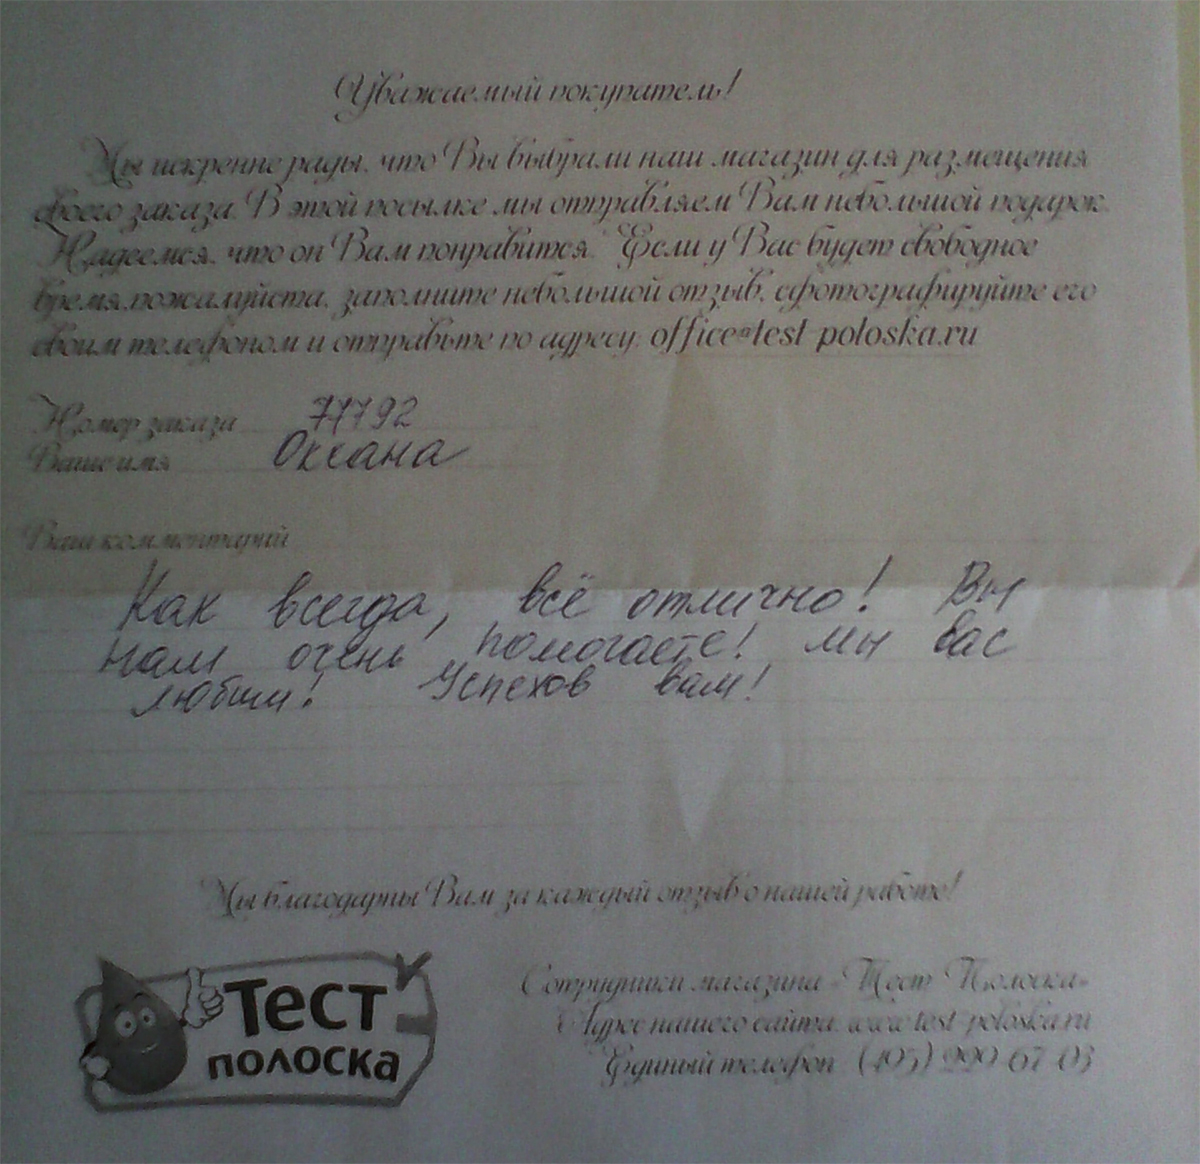 Уважаемый покупатель!
Мы искренне рады, что Вы выбрали наш магазин для размещения
своего заказа. В этой посылке мы отправляем Вам небольшой подарок.
Надеемся, что он Вам понравится. Если у Вас будет свободное
время,пожалуйста, заполните небольшой отзыв, сфотографируйте его
своим телефоном и отправьте по адресу: office@test-poloska.ru
Номер заказа 77792
Ваше имя Оксана
Ваш комментарий
Как всегда, всё отлично! Вы
нам очень помогаете! Мы вас
любим! Успехов вам!
Мы благодарны Вам за каждый отзыв о нашей работе!
Тест
полоска
Сотрудники магазина «Тест Полоска»
Адрес нашего сайта: www.test-poloska.ru
Единый телефон: (495) 990-67-03